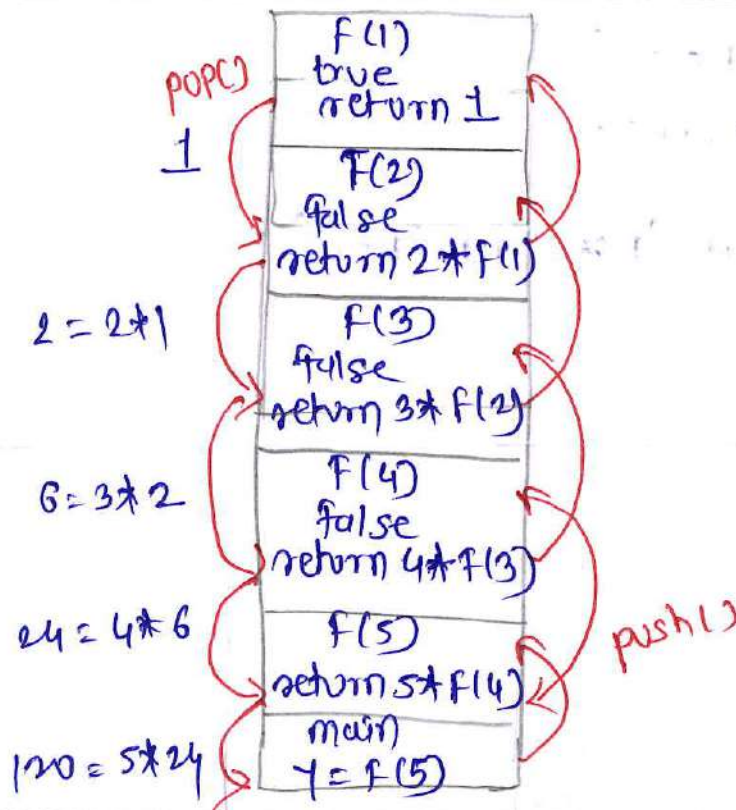 F(1)
true
return 1
pop()
1
F(2)
false
return 2*F(1)
2 = 2*1
F(3)
false
return 3* F(2)
6 = 3*2
F(4)
false
return 4* F(3)
24 = 4*6
F(5)
return 5* F(4)
push()
main
Y = F(5)
120 = 5*24